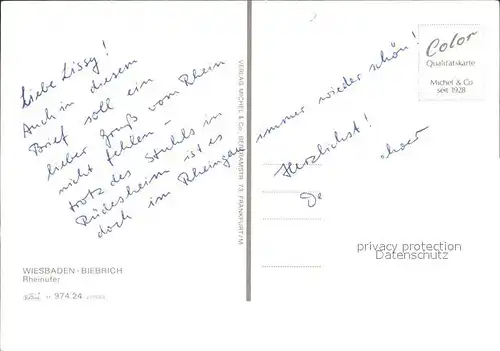 Liebe Lissy!
Auch in diesem
Brief soll ein
lieber Gruß vom Rhein
nicht fehlen –
trotz des Stuhls in
Rüdesheim ist es
doch im Rheingau immer wieder schön!
Herzlichst!
WIESBADEN - BIEBRICH
Rheinufer
974.24
VERLAG MICHEL & Co., BERGERSTR. 73, FRANKFURT/M
Color
Qualitätskarte
Michel & Co
seit 1928
privacy protection
Datenschutz